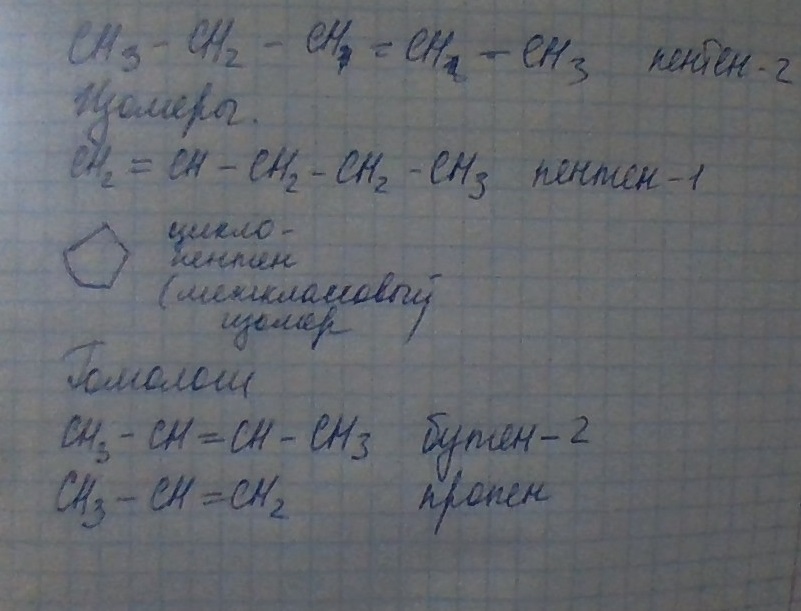 CH₃ - CH₂ - CH = CH - CH₃ пентен-2
Изомеры.
CH₂ = CH - CH₂ - CH₂ - CH₃ пентен-1
цикло-
пентан
(межклассовый
изомер)
Гомологи
CH₃ - CH = CH - CH₃ бутен-2
CH₃ - CH = CH₂ пропен